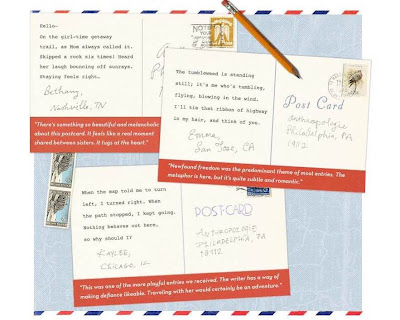 Hello-
On the girl-time getaway
trail, as Mom always called it.
Skipped a rock six times! Heard
her laugh bouncing off ourrays.
Staying feels right.
Bethany,
Nashville, TN
"There's something so beautiful and melancholic
about this postcard. It feels like a real moment
shared between sisters. It tugs at the heart."
The tumbleweed is standing
still; it's me who's tumbling,
flying, blowing in the wind.
I'll tie that ribbon of highway
in my hair, and think of you.
Emma,
San Jose, CA
Post Card
Anthropologie
Philadelphia, PA
19112
"Newfound freedom was the predominant theme of most entries. The
metaphor is here, but it's quite subtle and romantic."
When the map told me to turn
left, I turned right. When
the path stopped, I kept going.
Nothing behaves out here,
so why should I?
KAYLEE,
CHICAGO, IL
POST-CARD
ANTHROPOLOGIE
PHILADELPHIA, PA
19112
"This was one of the more playful entries we received. The writer has a way of
making defiance likeable. Traveling with her would certainly be an adventure."